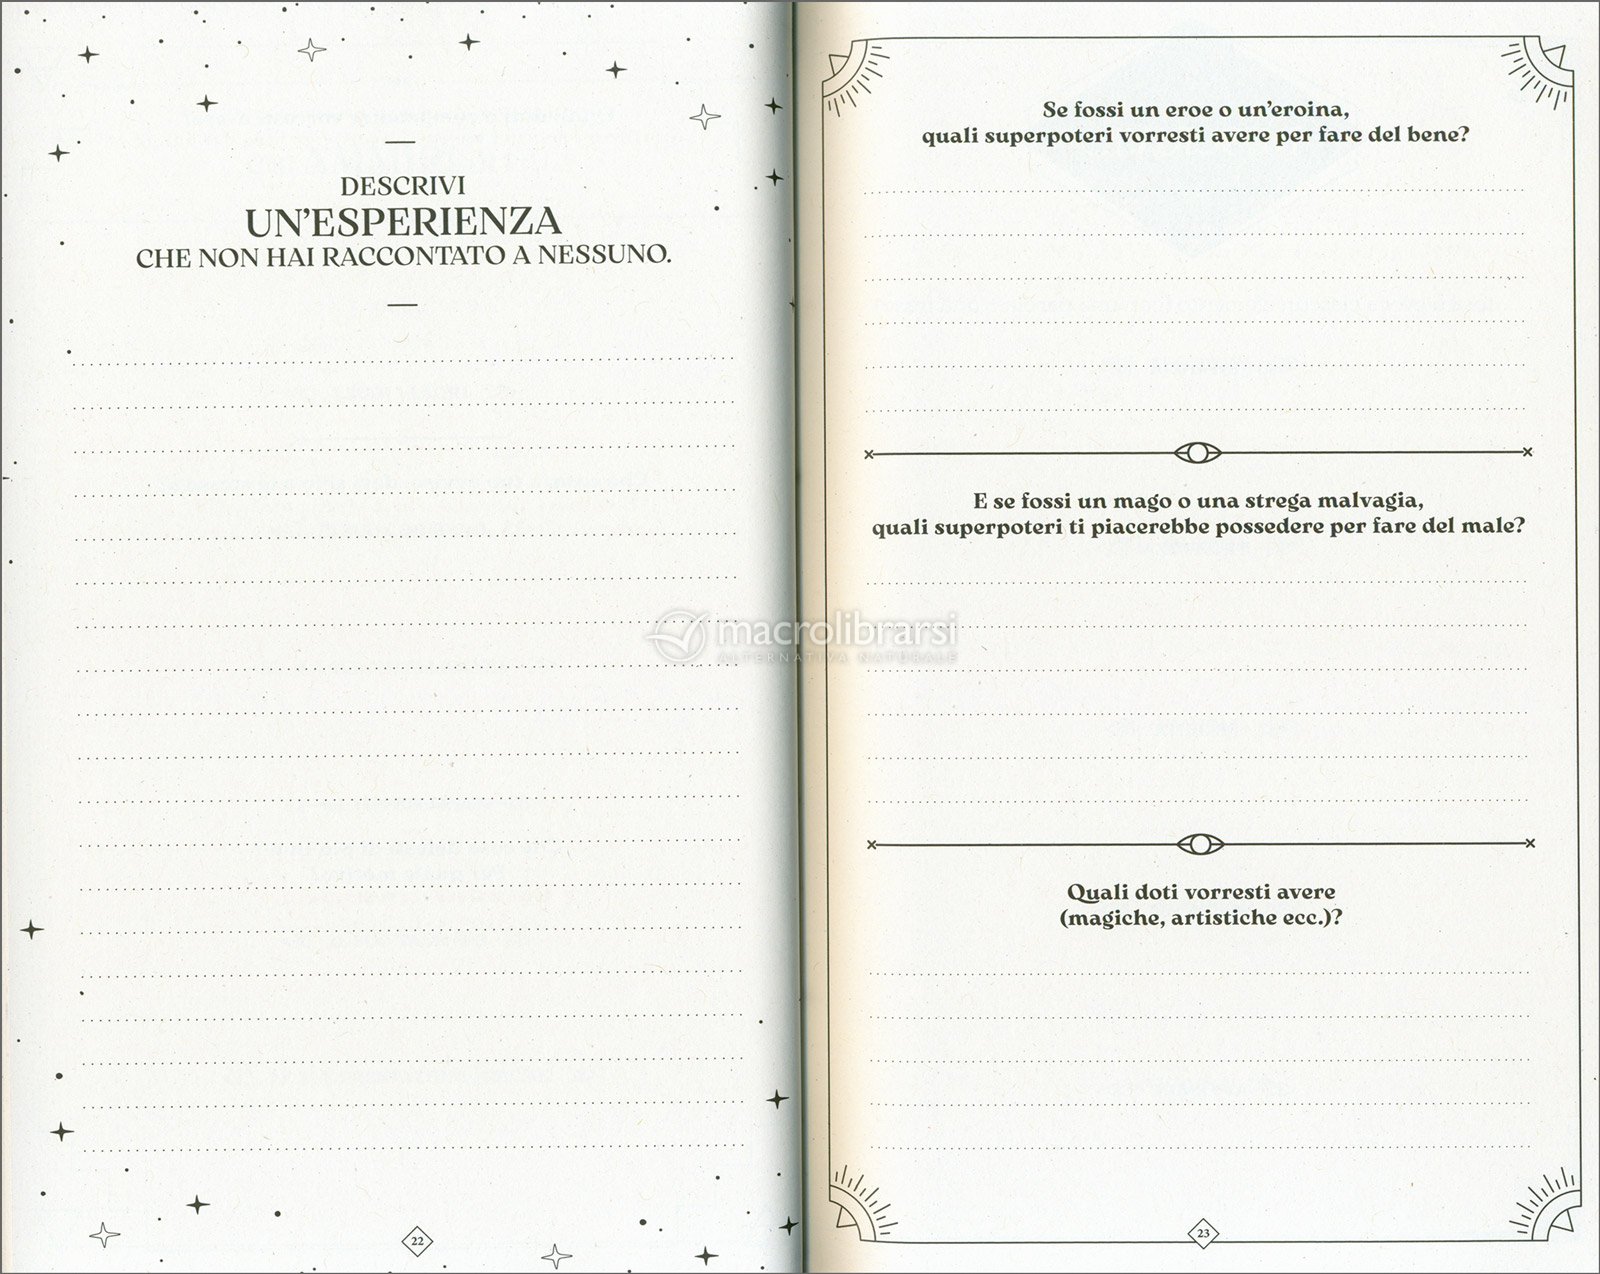 DESCRIVI
UN'ESPERIENZA
CHE NON HAI RACCONTATO A NESSUNO.
22
Se fossi un eroe o un'eroina,
quali superpoteri vorresti avere per fare del bene?
E se fossi un mago o una strega malvagia,
quali superpoteri ti piacerebbe possedere per fare del male?
Quali doti vorresti avere
(magiche, artistiche ecc.)?
23
macrolibrarsi
ALTERNATIVA NATURALE